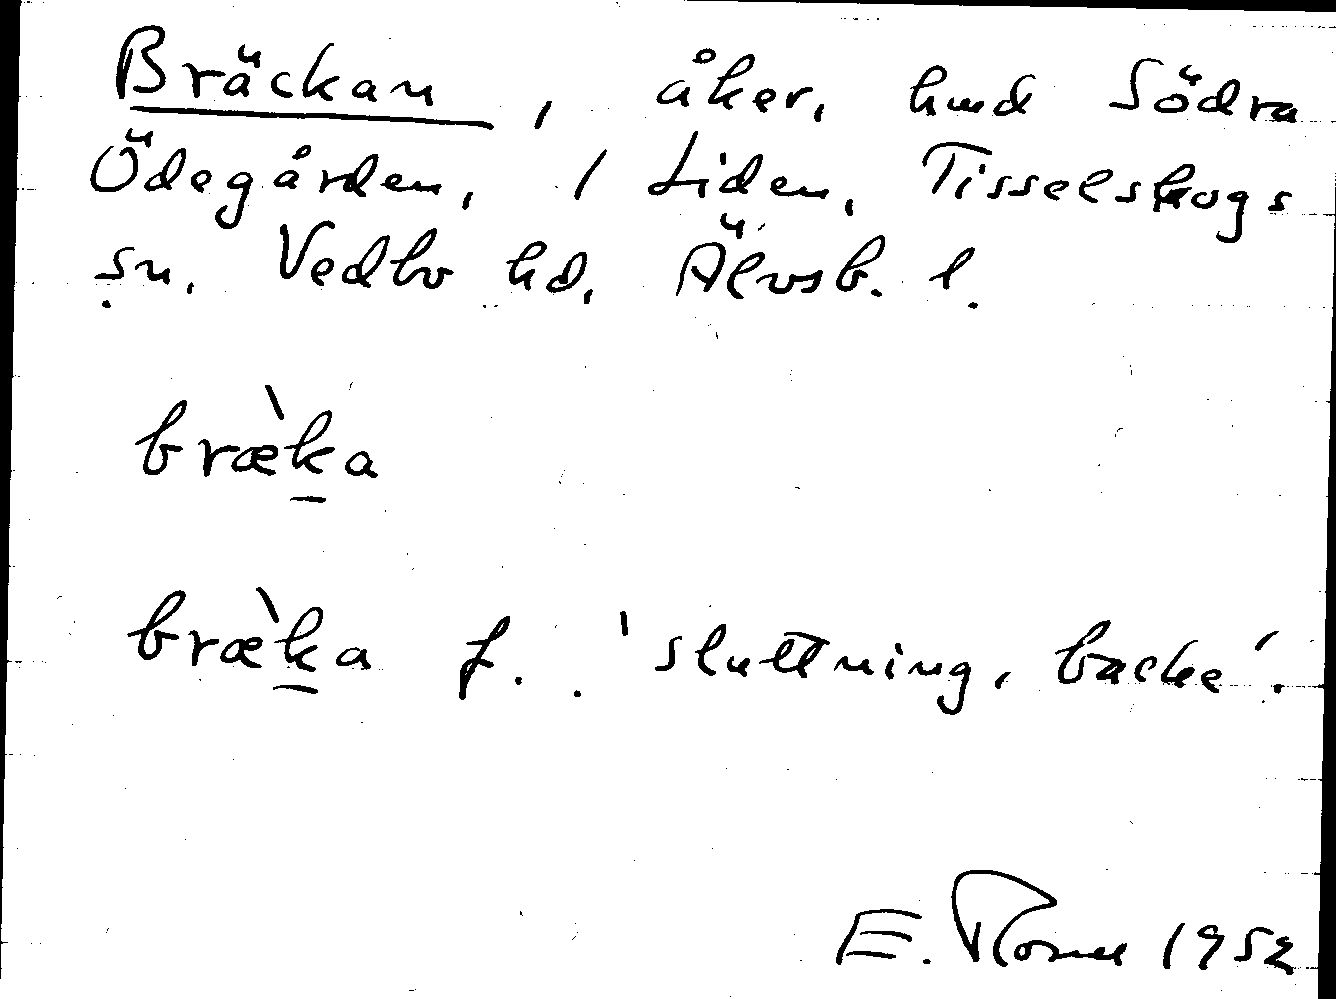 Bräckan, åker, hmd Södra
Ödegården, 1 Liden, Tisselskogs
sn. Vedbo hd, Älvsb. l.
bræ̀ka
bræ̀ka f. 'sluttning, backe'.
E. 1952